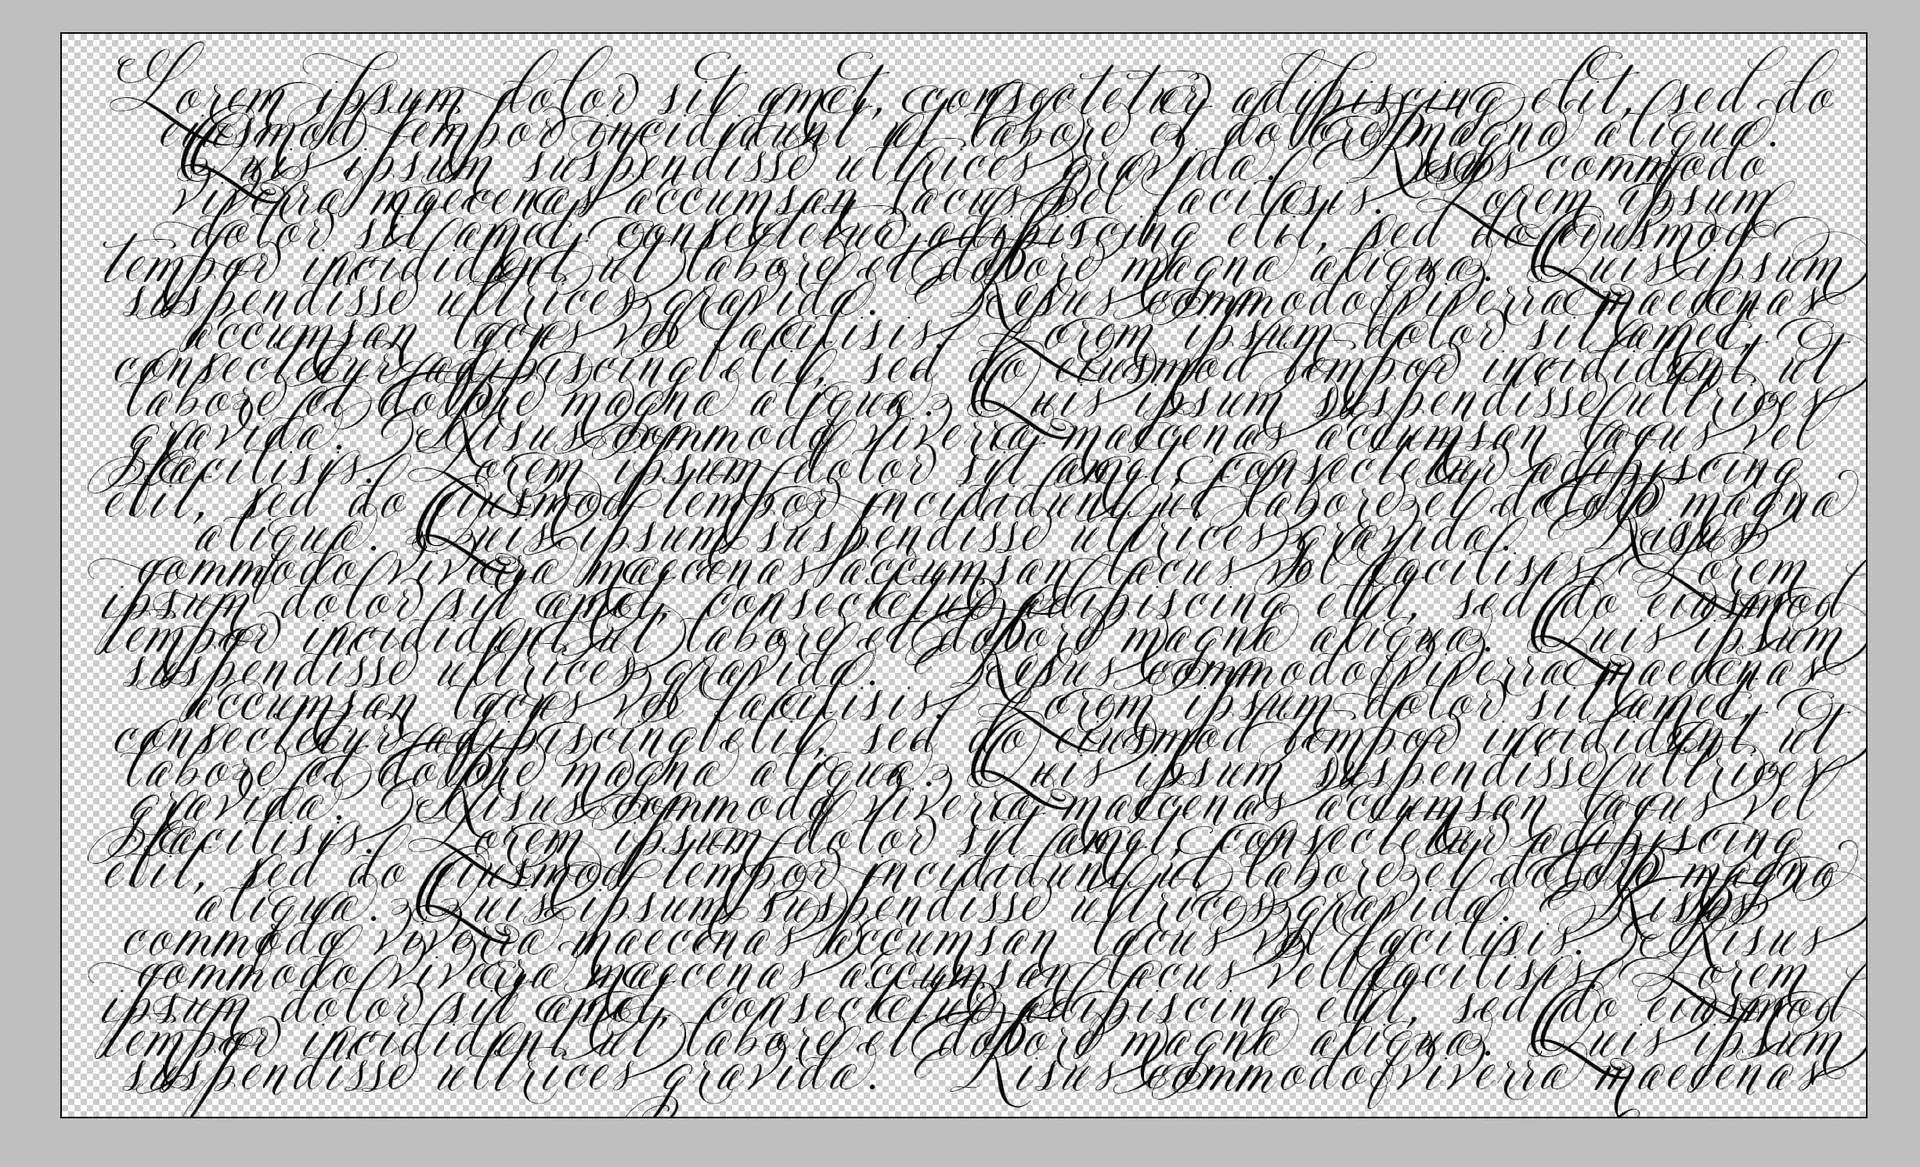 Lorem ipsum dolor sit amet, consectetur adipiscing elit, sed do
eiusmod tempor incididunt ut labore et dolore magna aliqua.
Quis ipsum suspendisse ultrices gravida. Risus commodo
viverra maecenas accumsan lacus vel facilisis. Lorem ipsum
dolor sit amet, consectetur adipiscing elit, sed do eiusmod
tempor incididunt ut labore et dolore magna aliqua. Quis ipsum
suspendisse ultrices gravida. Risus commodo viverra maecenas
accumsan lacus vel facilisis. Lorem ipsum dolor sit amet,
consectetur adipiscing elit, sed do eiusmod tempor incididunt ut
labore et dolore magna aliqua. Quis ipsum suspendisse ultrices
gravida. Risus commodo viverra maecenas accumsan lacus vel
facilisis. Lorem ipsum dolor sit amet, consectetur adipiscing
elit, sed do eiusmod tempor incididunt ut labore et dolore magna
aliqua. Quis ipsum suspendisse ultrices gravida. Risus
commodo viverra maecenas accumsan lacus vel facilisis. Lorem
ipsum dolor sit amet, consectetur adipiscing elit, sed do eiusmod
tempor incididunt ut labore et dolore magna aliqua. Quis ipsum
suspendisse ultrices gravida. Risus commodo viverra maecenas
accumsan lacus vel facilisis. Lorem ipsum dolor sit amet,
consectetur adipiscing elit, sed do eiusmod tempor incididunt ut
labore et dolore magna aliqua. Quis ipsum suspendisse ultrices
gravida. Risus commodo viverra maecenas accumsan lacus vel
facilisis. Lorem ipsum dolor sit amet, consectetur adipiscing
elit, sed do eiusmod tempor incididunt ut labore et dolore magna
aliqua. Quis ipsum suspendisse ultrices gravida. Risus
commodo viverra maecenas accumsan lacus vel facilisis. Risus
commodo viverra maecenas accumsan lacus vel facilisis. Lorem
ipsum dolor sit amet, consectetur adipiscing elit, sed do eiusmod
tempor incididunt ut labore et dolore magna aliqua. Quis ipsum
suspendisse ultrices gravida. Risus commodo viverra maecenas